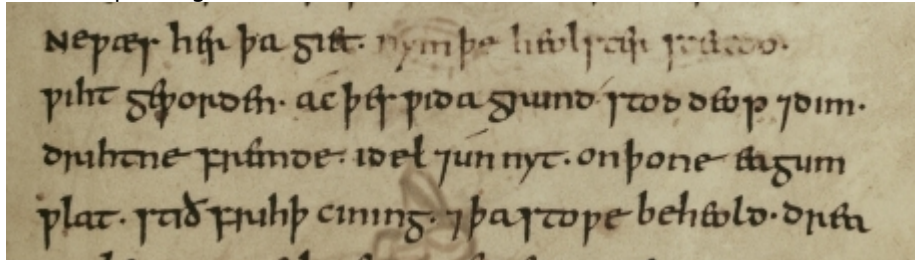 Neƿæs her þa giet· nymþe heolster sceado·
ƿiht geƿorden· ac þes ƿida grund stod deop ⁊dim·
drihtne fremde· idel ⁊unnyt· onþone eagum
ƿlat· stið frihþ cining· ⁊þa stoƿe beheold· drea